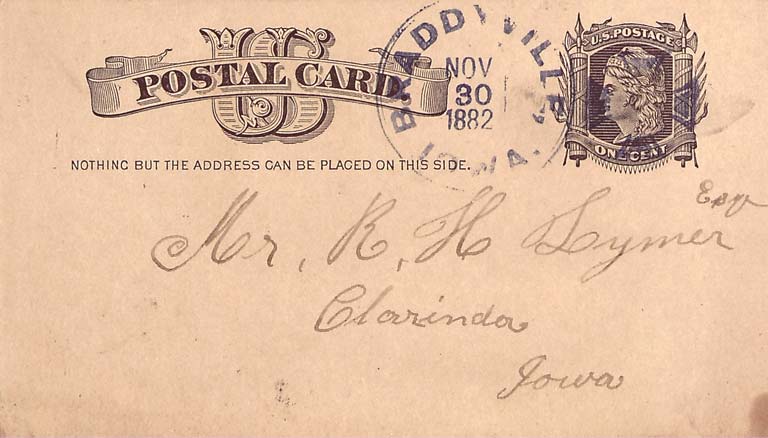 US
POSTAL CARD
NOTHING BUT THE ADDRESS CAN BE PLACED ON THIS SIDE.
BRADDYVILLE, IOWA.
NOV
30
1882
U.S. POSTAGE
ONE CENT
Esqr
Mr. R. H. Lymer
Clarinda
Iowa